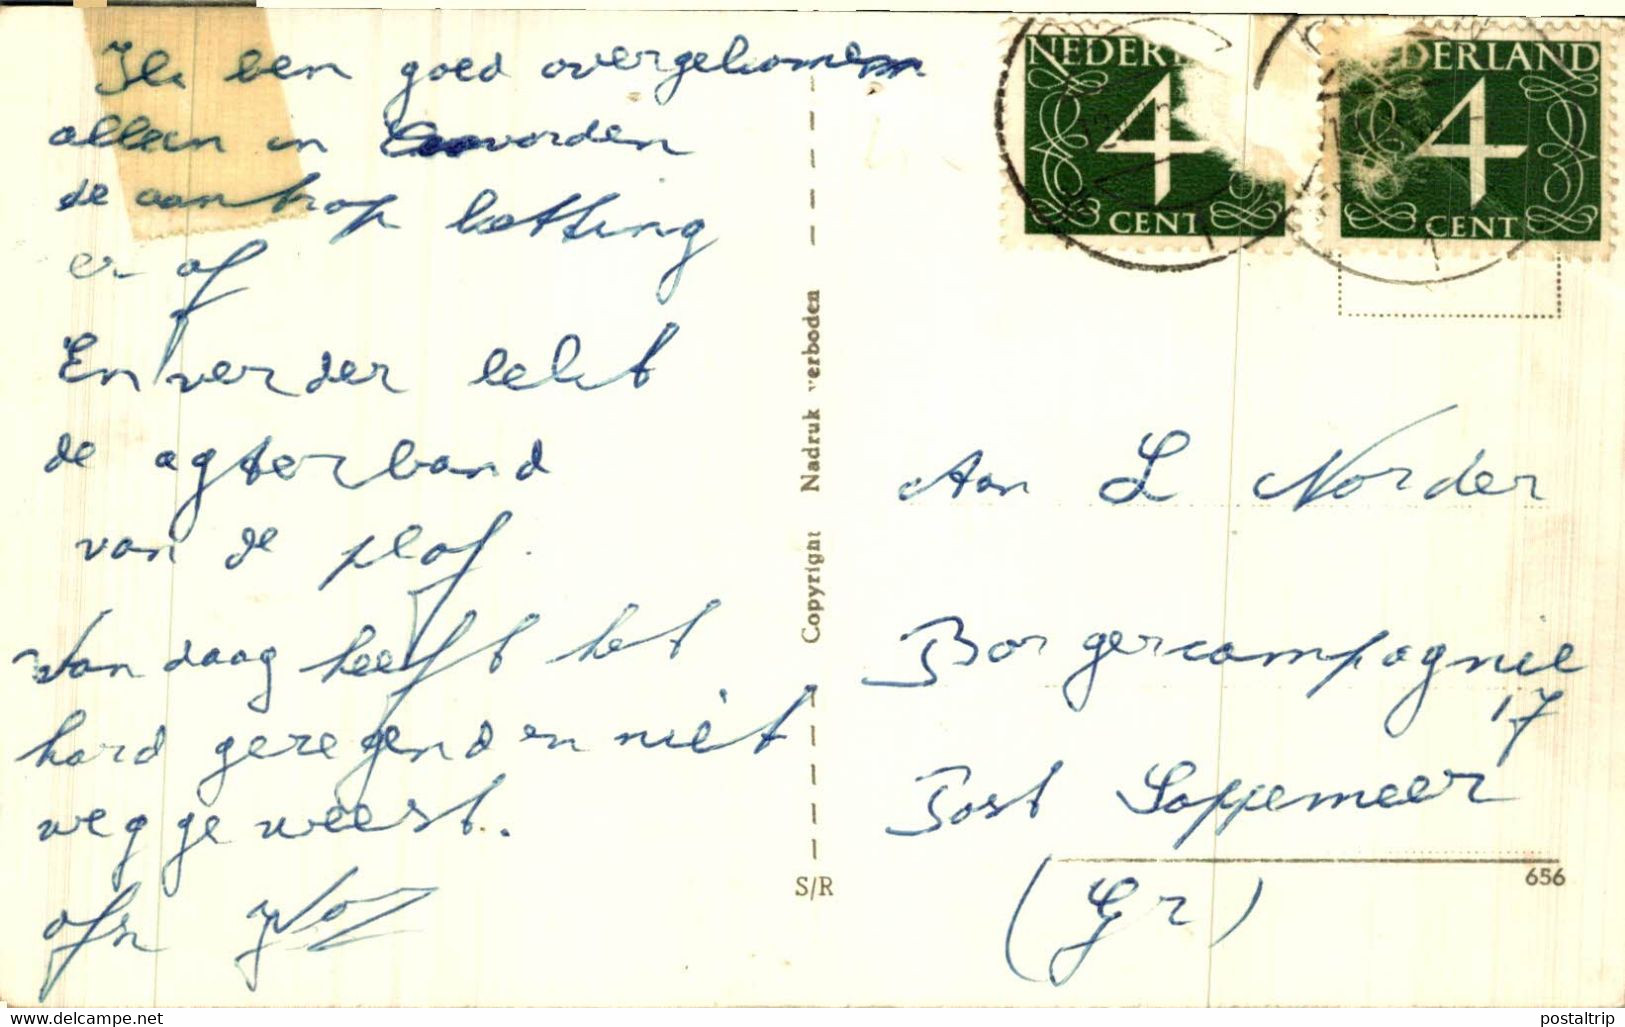 Ik ben goed overgekomen
alleen in voorden
de aanhop ketting
er af
En verder lekt
de agterband
van de plof
Van daag heeft het
hard geregend en niet
weg geweest.
afz
Copyright Nadruk verboden
S/R
NEDERL
4
CENT
NEDERLAND
4
CENT
Aan L Norder
Borgercompagnie
17
Post Sappemeer
(Gr)
656
www.delcampe.net
postaltrip